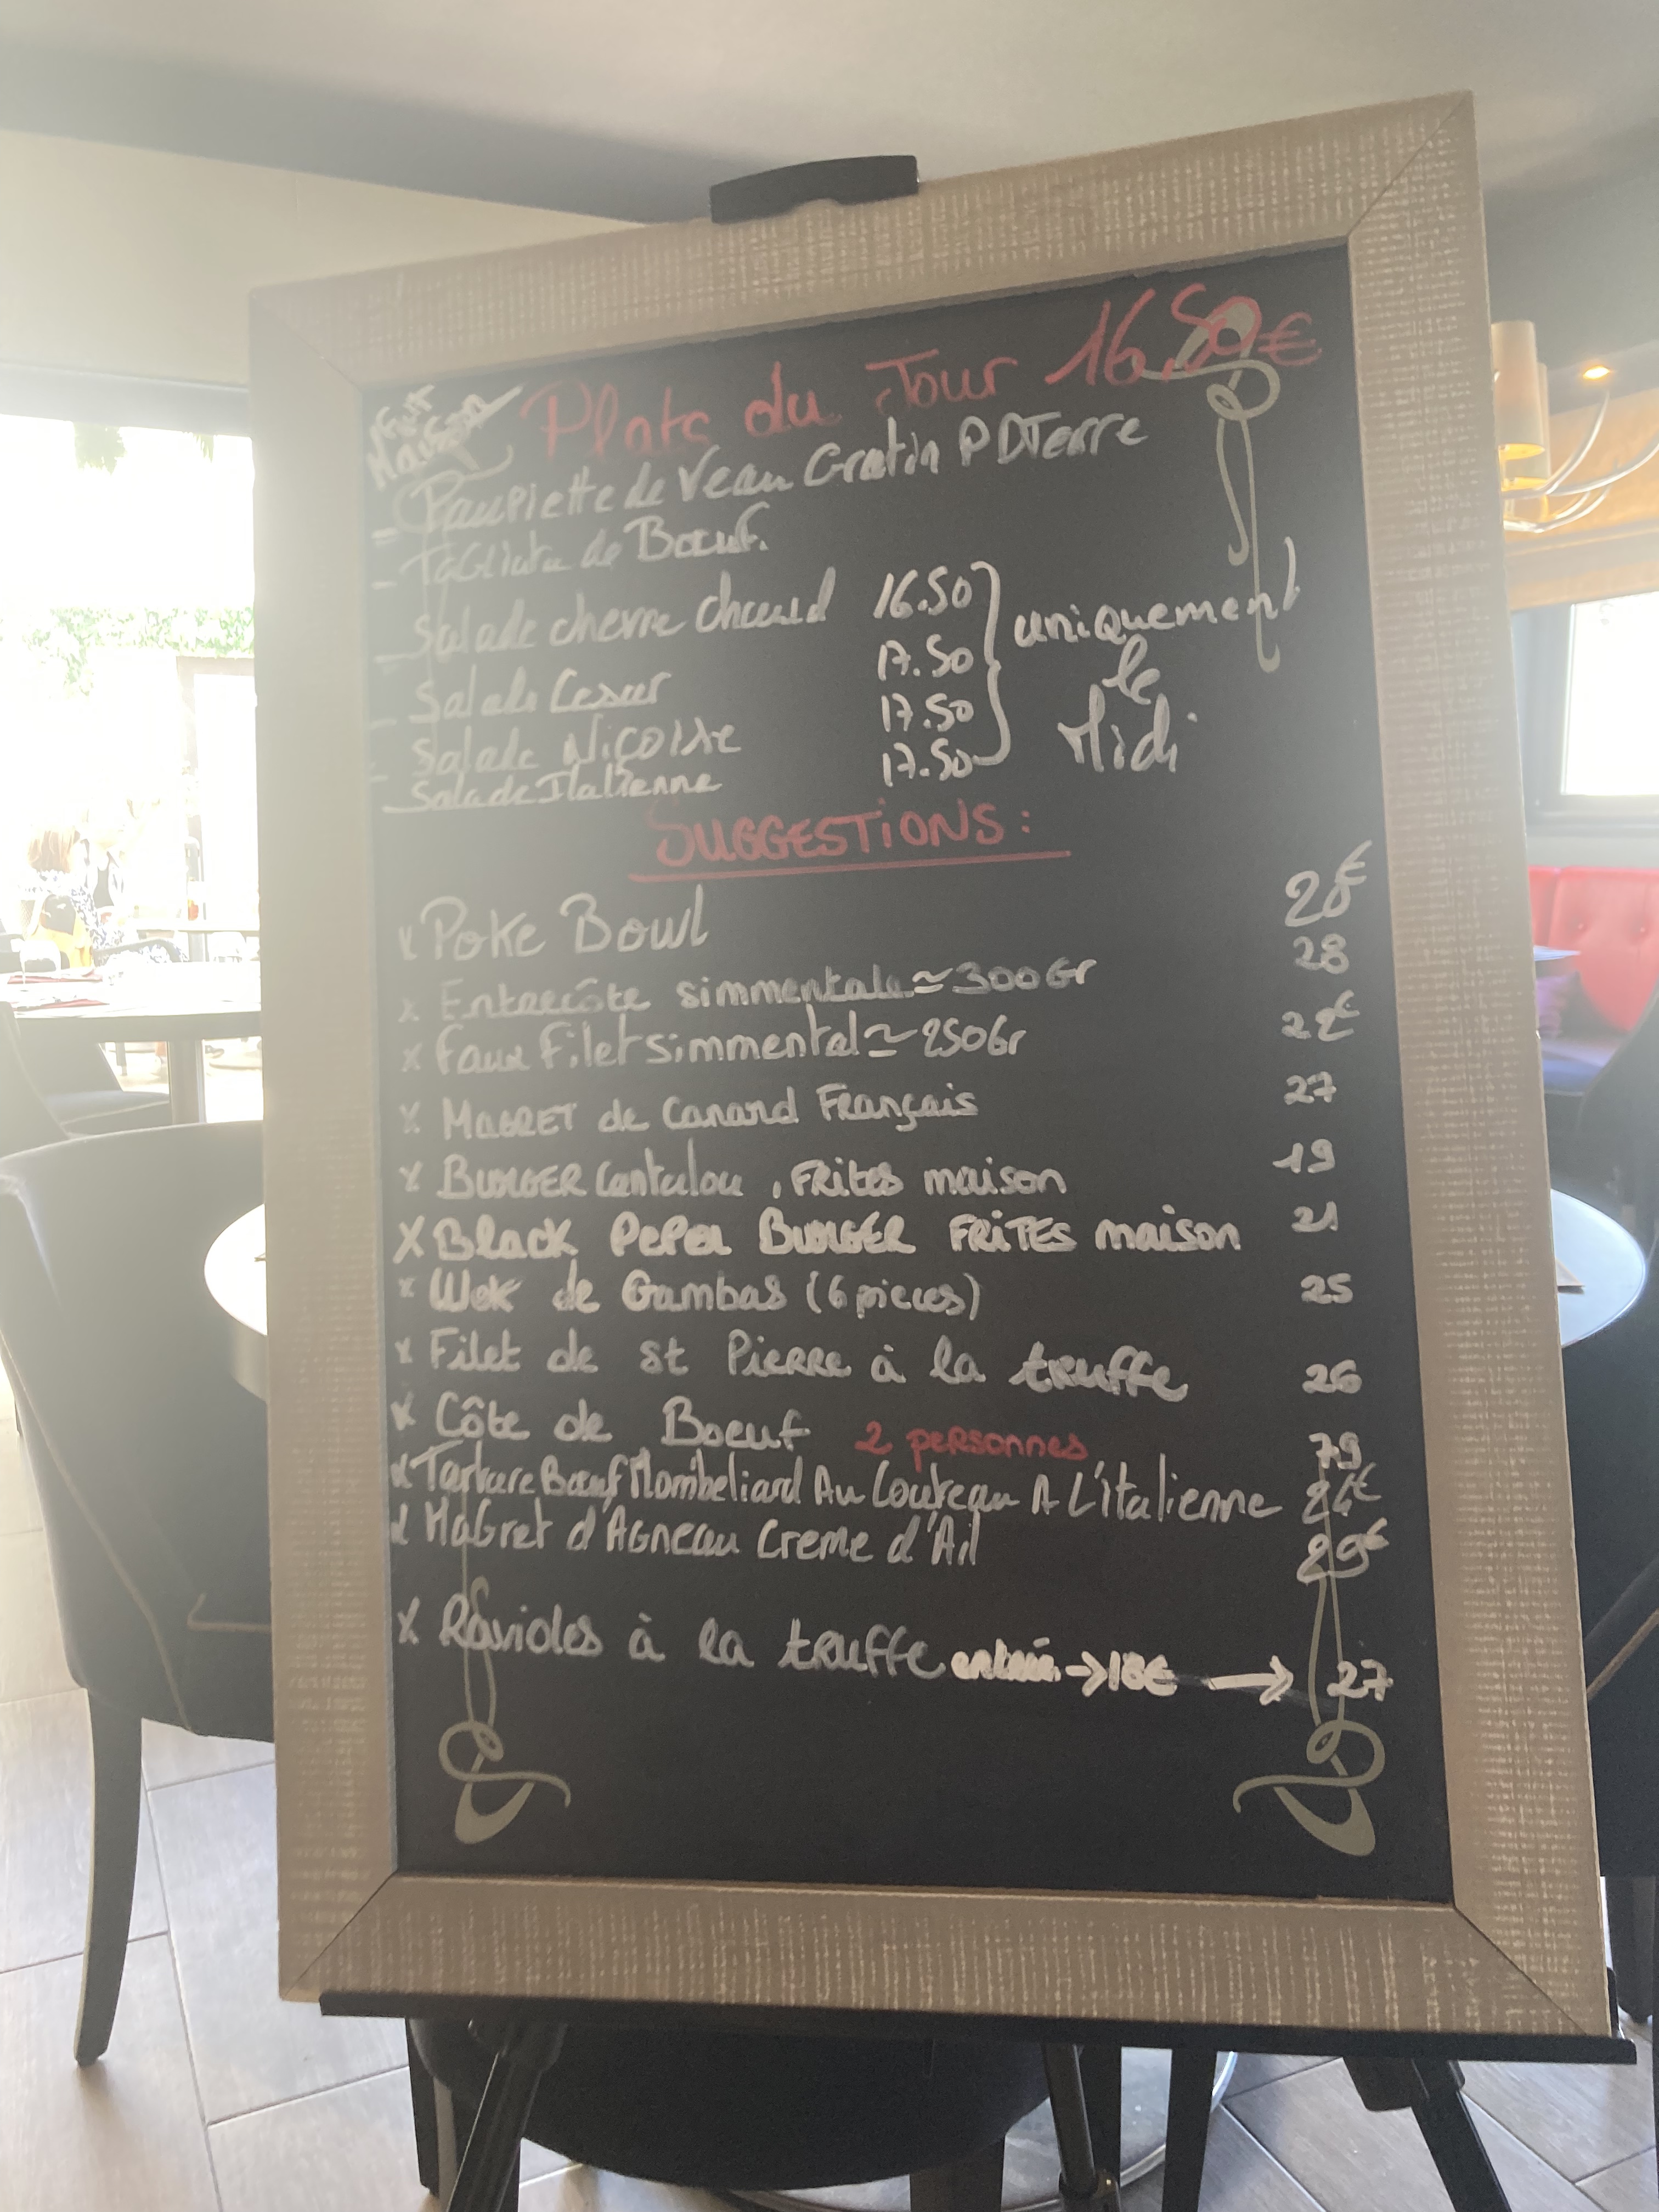 Fait
Maison
Plats du Jour 16,50€
- Paupiette de Veau Gratin P DTerre
- Tagliata de Boeuf.
- Salade chevre chaud 16.50
- Salade Cesar 17.50
- Salade Niçoise 17.50
- Salade Italienne 17.50
uniquement
le
Midi
SUGGESTIONS:
x Poke Bowl
x Entrecôte simmentale ≃ 300Gr 28
x Faux Filet simmental ≃ 250Gr 22€
x MAGRET de Canard Français 27
x BURGER Cantalou, FRites maison 19
x Black PePer BURGER FRITES maison 21
x Wok de Gambas (6 pieces) 25
x Filet de st Pierre à la truffe 26
x Côte de Boeuf 2 personnes 79
x Tartare Bœuf Mombeliard Au Couteau A L'italienne 24€
x MaGret d'AGneau Creme d'Ail 29€
x Ravioles à la truffe entrée → 18€ → 27